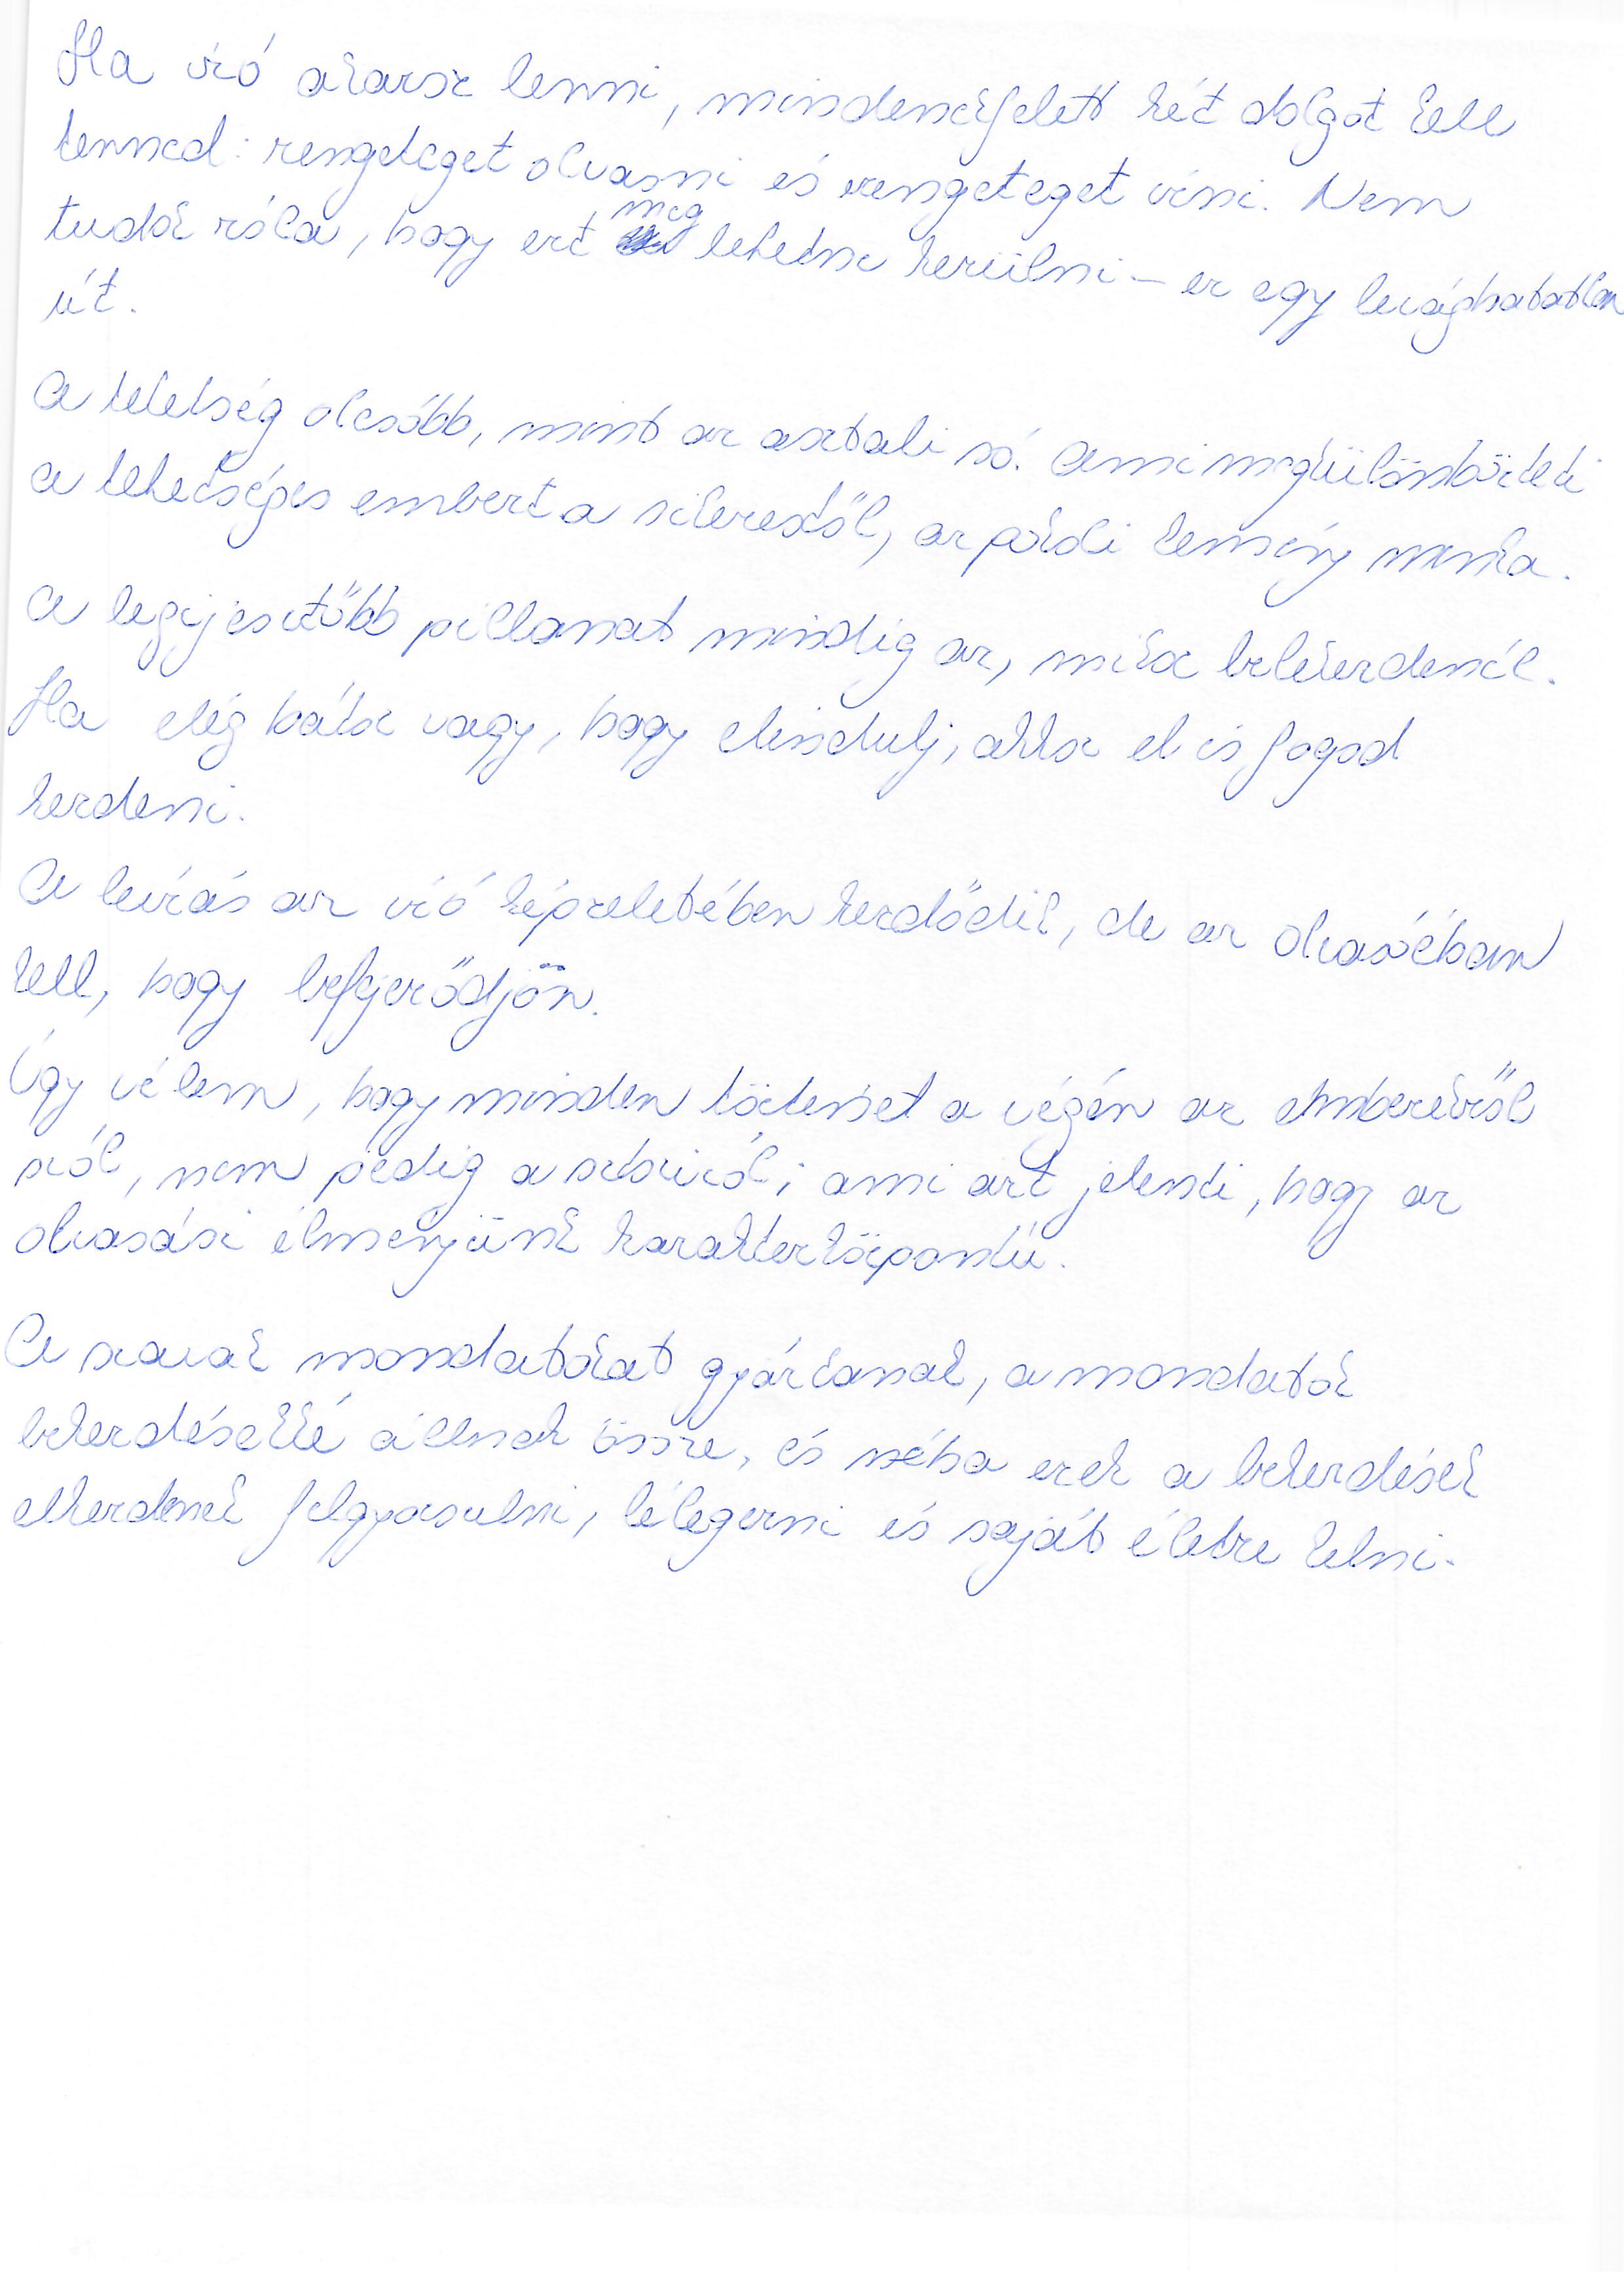 Ha író akarsz lenni, mindenekfelett két dolgot kell
tenned: rengeteget olvasni és rengeteget írni. Nem
tudok róla, hogy ezt meg lehetne kerülni – ez egy levághatatlan
út.
A tehetség olcsóbb, mint az asztali só. Ami megkülönbözteti
a tehetséges embert a sikerestől, az pokoli kemény munka.
A legijesztőbb pillanat mindig az, mikor belekezdenél.
Ha elég bátor vagy, hogy elindulj, akkor el is fogod
kezdeni.
A leírás az író képzeletében kezdődik, de az olvasóéban
kell, hogy befejeződjön.
Úgy vélem, hogy minden történet a végén az emberekről
szól, nem pedig a sztoriról; ami azt jelenti, hogy az
olvasási élményünk karakterközpontú.
A szavak mondatokat gyártanak, a mondatok
bekezdésekké állnak össze, és néha ezek a bekezdések
elkezdenek felgyorsulni, lélegezni és saját életre kelni.